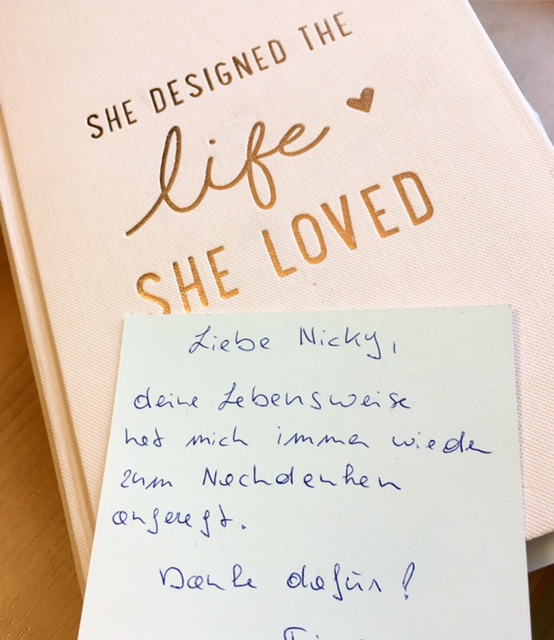 SHE DESIGNED THE
life
SHE LOVED
Liebe Nicky,
deine Lebensweise
hat mich immer wieder
zum Nachdenken
angeregt.
Danke dafür!